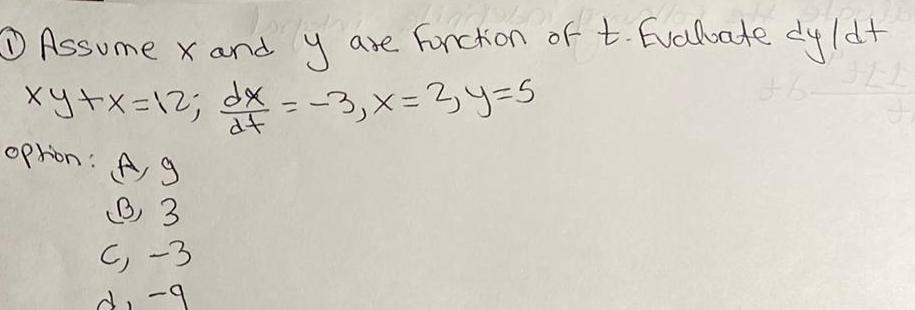 ① Assume x and y are function of t. Evaluate dy/dt
xy+x=12; dx/dt = -3, x=2, y=5
option: A, 9
B, 3
C, -3
d, -9